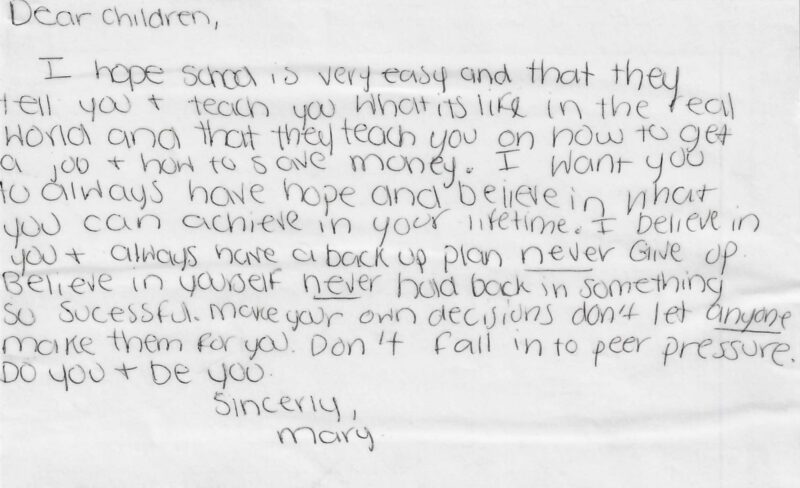 Dear Children,
I hope school is very easy and that they
tell you + teach you what its like in the real
world and that they teach you on how to get
a job + how to save money. I want you
to always have hope and believe in what
you can achieve in your lifetime. I believe in
you + always have a back up plan never Give up.
Believe in yourself never hold back in something
so sucessful. make your own decisions don't let anyone
make them for you. Don't fall in to peer pressure.
Do you + be you.
Sincerly,
mary